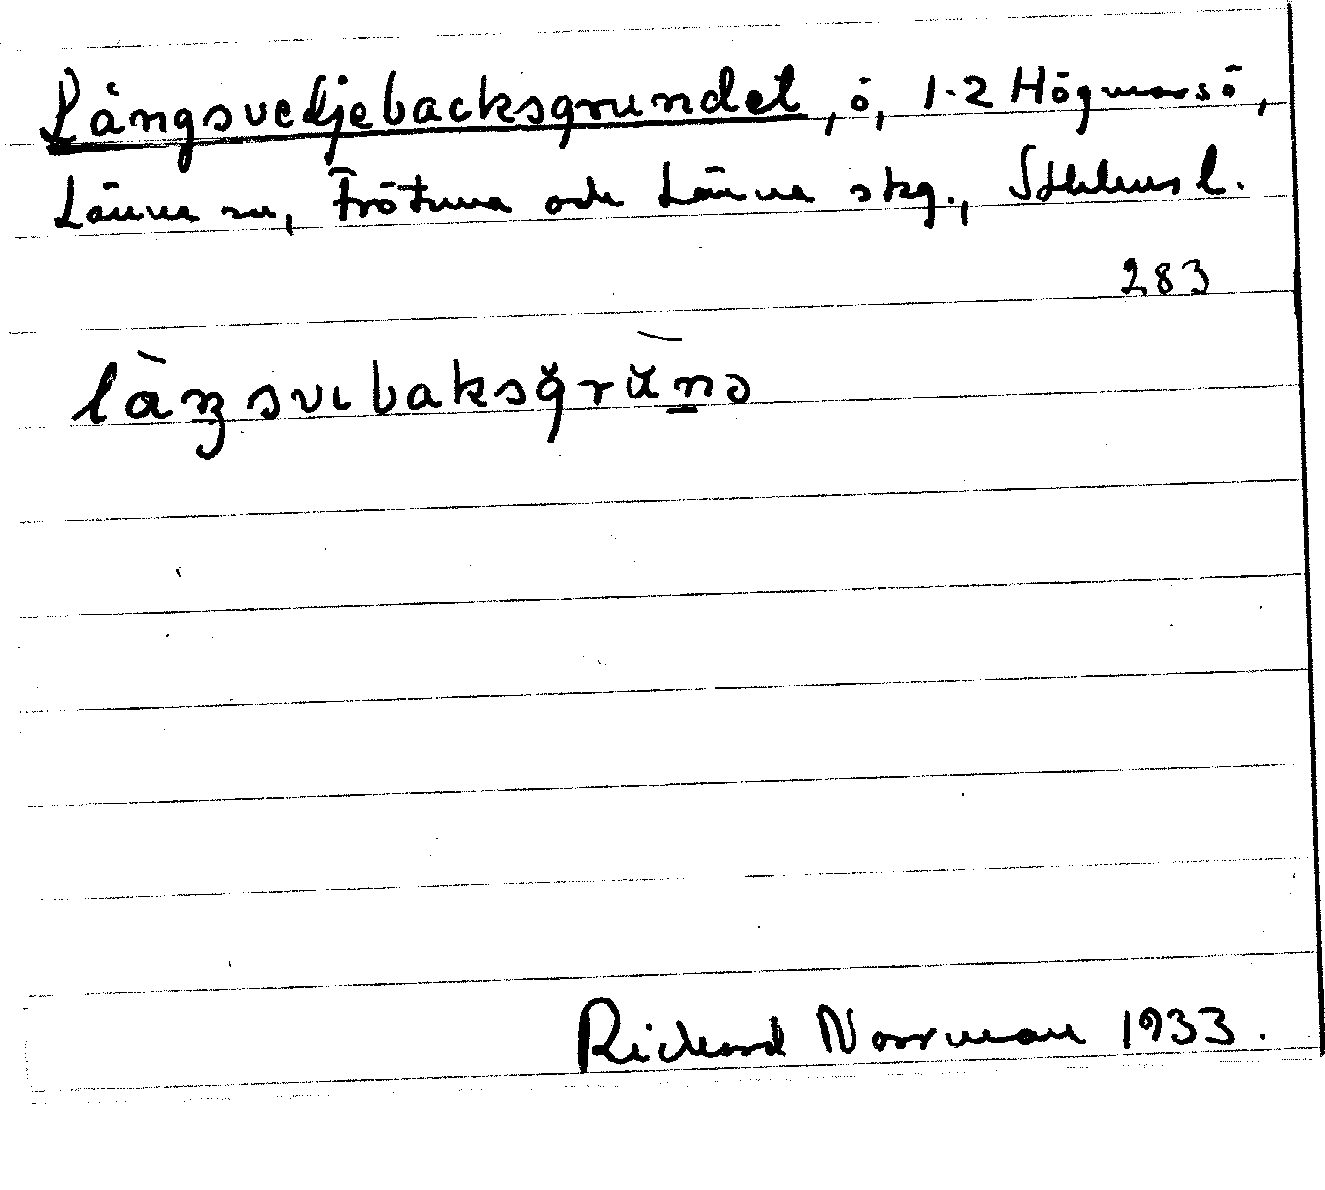 Långsvedjebacksgrundet, ö, 1-2 Högmarsö,
Länna sn, Frötuna och Länna skg., Sthlms l.
283
làŋsvɩbaksgrŭ̀nə
Rickard Norrman 1933.